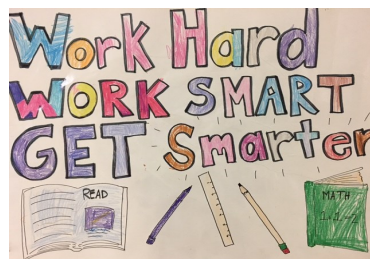 Work Hard
WORK SMART
GET Smarter
READ
MATH